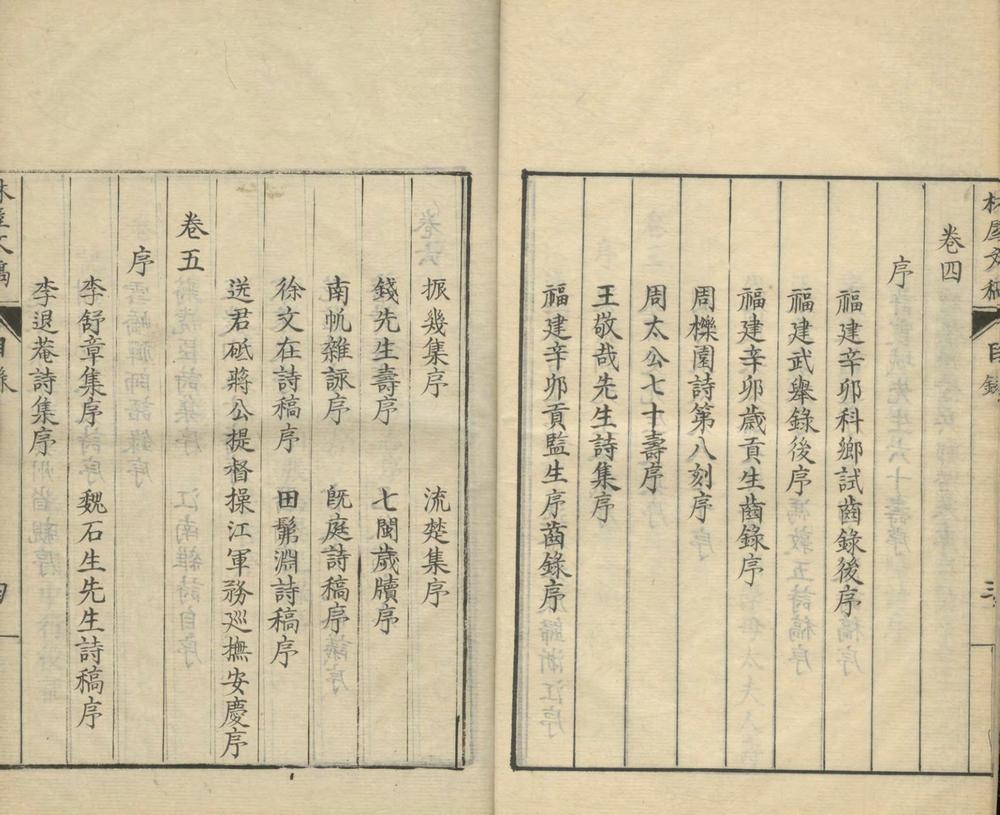 林屋文稿 目錄 三
卷四
序
福建辛卯科鄉試齒錄後序
福建武舉錄後序
福建辛卯歲貢生齒錄序
周櫟園詩第八刻序
周太公七十壽序
王敬哉先生詩集序
福建辛卯貢監生序齒錄序
振幾集序 流楚集序
錢先生壽序 七閩歲牘序
南帆雜詠序 旣庭詩稿序
徐文在詩稿序 田髴淵詩稿序
送君砥蔣公提督操江軍務巡撫安慶序
卷五
序
李舒章集序 魏石生先生詩稿序
李退菴詩集序
林屋文稿 目錄